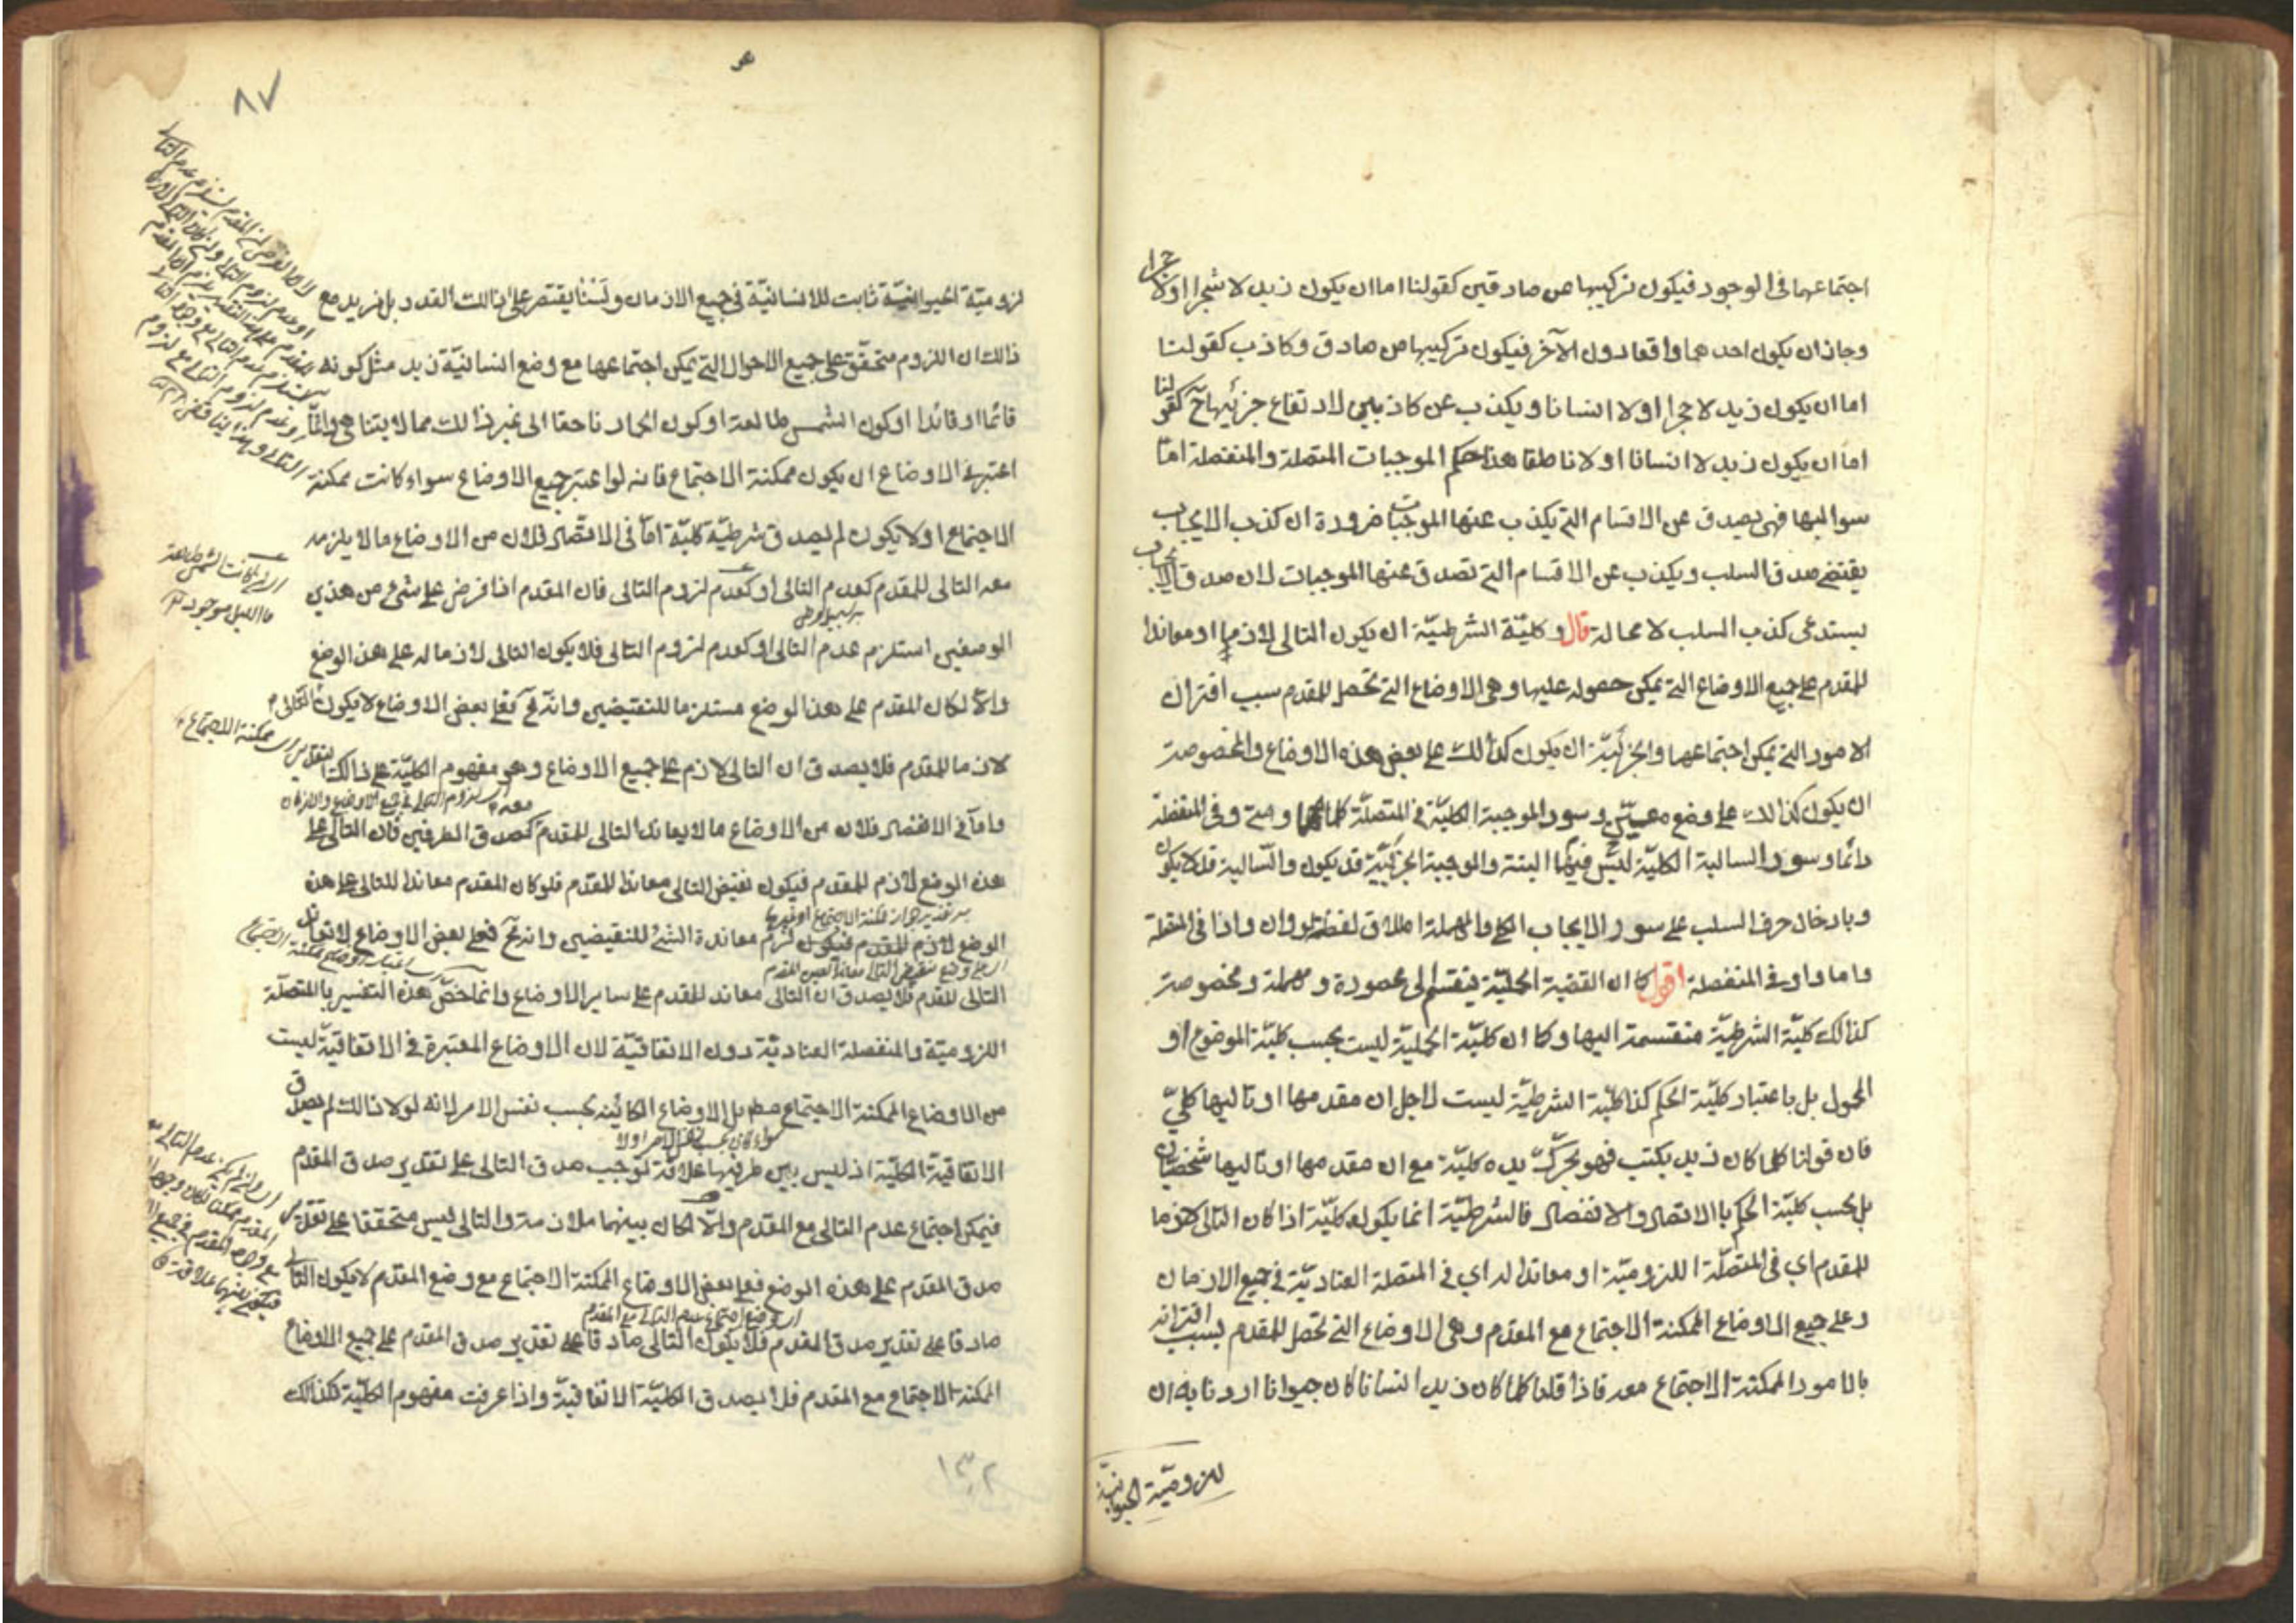 اجتماعهما في الوجود فيكون تركيبها من صادقين كقولنا اما ان يكون زيد لا شجرا او لا حجرا
وجاز ان يكون احدهما واقعا دون الآخر فيكون تركيبها من صادق وكاذب كقولنا
اما ان يكون زيد لا حجرا او لا انسانا ويكذب عن كاذبين لارتفاع جزئيها ح كقولنا
اما ان يكون زيد لا انسانا او لا ناطقا هذا حكم الموجبات المتصلة والمنفصلة امّا
سوالبها فهي يصدق عن الاقسام التي يكذب عنها الموجبات ضرورة ان كذب الايجاب
يقتضي صدق السلب ويكذب عن الاقسام التي تصدق عنها الموجبات لان صدق الايجاب
يستدعي كذب السلب لا محالة قال وكليّة الشرطيّة ان يكون التالي لازما او معاندا
للمقدم على جميع الاوضاع التي يمكن حصوله عليها وهي الاوضاع التي تحصل للمقدم سبب اقتران
الامور التي يمكن اجتماعها والجزئيّة ان يكون كذالك على بعض هذه الاوضاع والمخصوصة
ان يكون كذالك على وضع معيّن وسور الموجبة الكليّة في المتصلة كلما ومهما ومتى وفي المنفصلة
دائما وسور السالبة الكليّة ليس فيهما البتة والموجبة الجزئيّة قد يكون والسّالبة قد لا يكون
وبادخال حرف السلب على سور الايجاب الكلي والمهملة اطلاق لفظة لو وان واذا في المتصلة
واما واو في المنفصلة اقول كما ان القضية الحمليّة ينقسم الى محصورة ومهملة ومخصوصة
كذالك كليّة الشرطيّة منقسمة اليها وكما ان كليّة الحمليّة ليست بحسب كليّة الموضوع او
المحمول بل باعتبار كليّة الحكم كذا كليّة الشرطيّة ليست لاجل ان مقدمها او تاليها كليّ
فان قولنا كلما كان زيد يكتب فهو يحرّك يده كليّة مع ان مقدمها او تاليها شخصيان
بل بحسب كليّة الحكم بالاتصال والانفصال فالشرطيّة انما يكون كليّة اذا كان التالي لازما
للمقدم اي في المتصلة اللزوميّة او معاندا له اي في المتصلة العناديّة في جميع الازمان
وعلى جميع الاوضاع الممكنة الاجتماع مع المقدم وهي الاوضاع التي تحصل للمقدم بسبب اقترانه
بالامور الممكنة الاجتماع معه فاذا قلنا كلما كان زيد انسانا كان حيوانا اردنا به ان
لزوميّة الحيوانيّة
٨٧
لزوميّة الحيوانيّة ثابت للانسانيّة في جميع الازمان ولسنا يقتصر على ذالك القدر بل نريد مع
ذالك ان اللزوم متحقّق على جميع الاحوال التي يمكن اجتماعها مع وضع انسانيّة زيد مثل كونه
قائما او قاعدا او كون الشمس طالعة او كون الحمار ناهقا الى غير ذالك مما لا يتناهى وانّما
اعتبر في الاوضاع ان يكون ممكنة الاجتماع فانه لو اعتبر جميع الاوضاع سواء كانت ممكنة
الاجتماع او لا يكون لم يصدق شرطيّة كليّة امّا في الاتّصال فلان من الاوضاع ما لا يلزمه
معه التالي للمقدم كعدم التالي او كعدم لزوم التالي فان المقدم اذا فرض على شيء من هذين
الوصفين استلزم عدم التالي او كعدم لزوم التالي فلا يكون التالي لازما له على هذا الوضع
والا لكان المقدم على هذا الوضع مستلزما للنقيضين وانه مح فعلى بعض الاوضاع لا يكون التالي
لازما للمقدم فلا يصدق ان التالي لازم على جميع الاوضاع وهو مفهوم الكليّة على ذالك التقدير
واما في الانفصال فلان من الاوضاع ما لا يعاند التالي للمقدم كصدق الطرفين فان التالي على
هذا الوضع لازم للمقدم فيكون نقيض التالي معاندا للمقدم فلو كان المقدم معاندا للتالي على هذا
الوضع لازم للمقدم فيكون لزم معاندة الشيء للنقيضين وانه مح فعلى بعض الاوضاع لا يعاند
التالي للمقدم فلا يصدق ان التالي معاند للمقدم على ساير الاوضاع وانما خصّ هذه التفسير بالمتصلة
اللزوميّة والمنفصلة العناديّة دون الاتفاقيّة لان الاوضاع المعتبرة في الاتفاقيّة ليست
من الاوضاع الممكنة الاجتماع مط بل الاوضاع الكائنة بحسب نفس الامر لانه لولا ذالك لم يصدق
الاتفاقية الكليّة اذ ليس بين طرفيها علاقة توجب صدق التالي على تقدير صدق المقدم
فيمكن اجتماع عدم التالي مع المقدم والّا لكان بينهما ملازمة والتالي ليس متحققا على تقدير
صدق المقدم على هذه الوضع فعلى بعض الاوضاع الممكنة الاجتماع مع وضع المقدم لا يكون التالي
صادقا على تقدير صدق المقدم فلا يكون التالي صادقا على تقدير صدق المقدم على جميع الاوضاع
الممكنة الاجتماع مع المقدم فلا يصدق الكليّة الاتفاقيّة واذا عرفت مفهوم الكليّة فكذالك
اي لزوم التالي في جميع الاوضاع والازمان
سواء كان بحسب نفس الامر او لا
اي وضع اجتماع عدم التالي مع المقدم
١٣٢